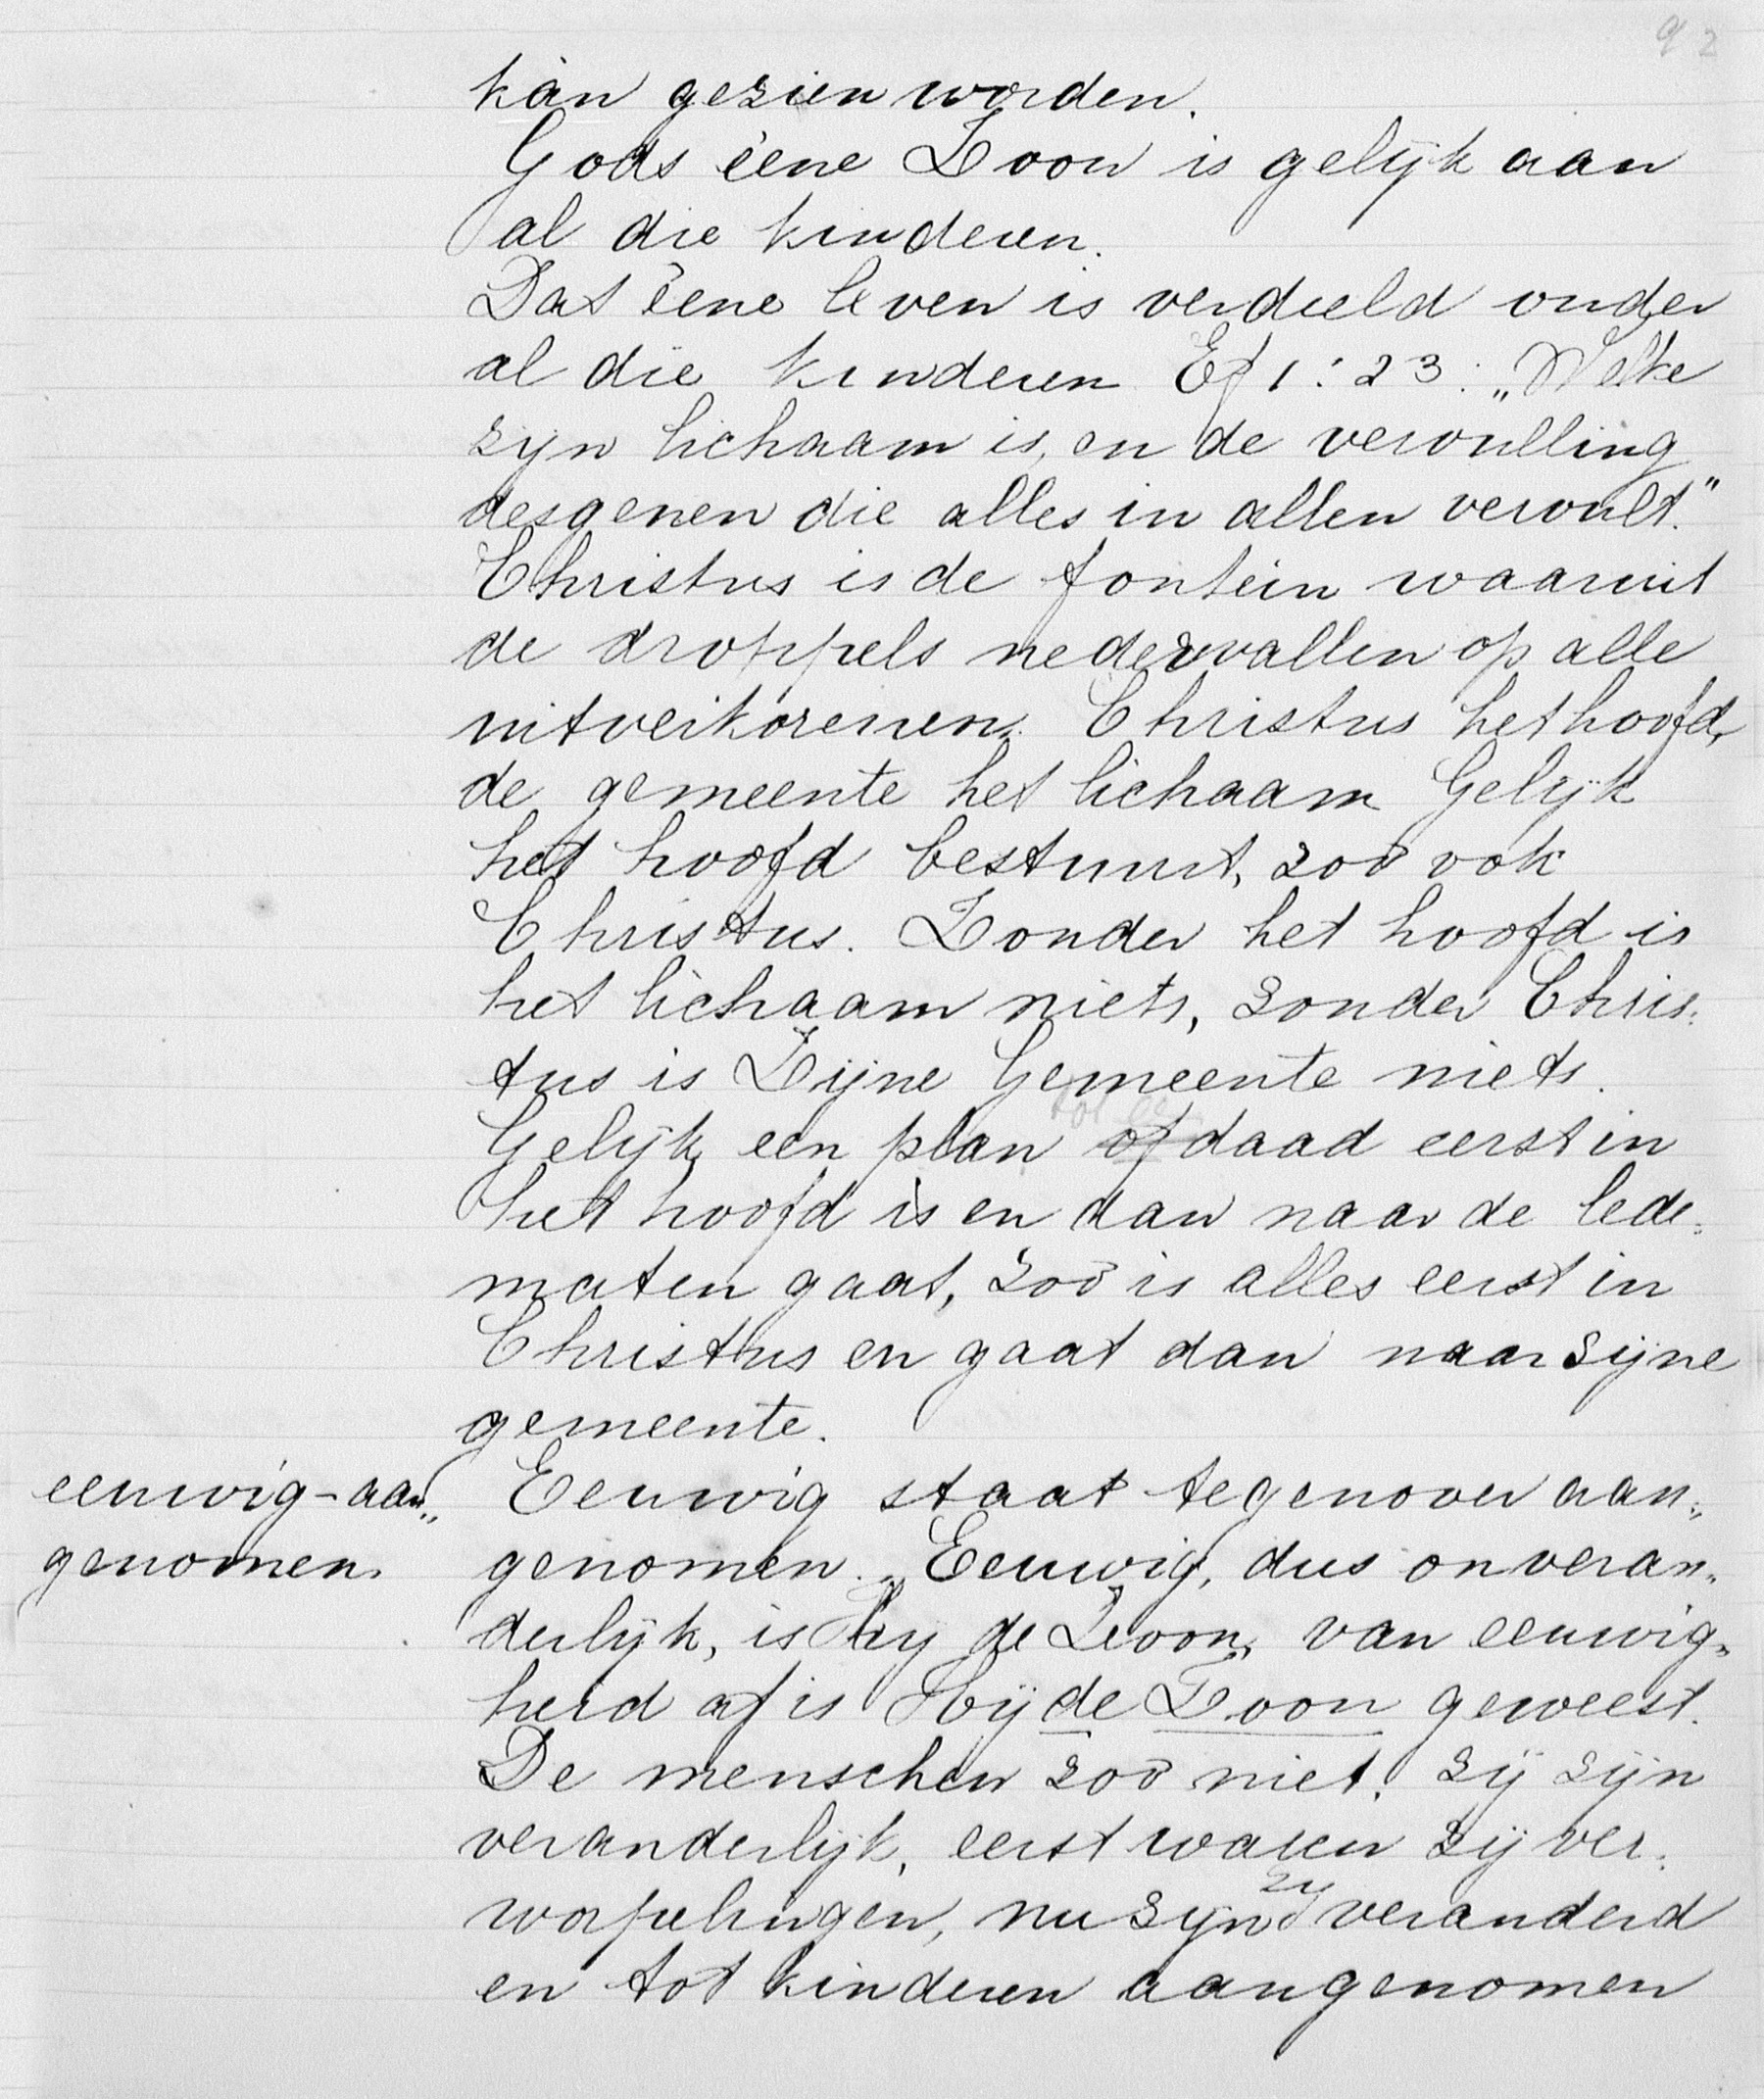 92
kàn gezien worden.
Gods ééne Zoon is gelijk aan
al die kinderen.
Dat ééne leven is verdeeld onder
al die kinderen Ef 1:23: „Welke
zijn lichaam is, en de vervulling
desgenen die alles in allen vervult."
Christus is de fontein waaruit
de droppels nedervallen op alle
uitverkorenen. Christus het hoofd,
de gemeente het lichaam Gelijk
het hoofd bestuurt, zoo ook
Christus. Zonder het hoofd is
het lichaam niets, zonder Chris„
tus is Zijne Gemeente niets.
Gelijk een plan of daad eerst in
het hoofd is en dan naar de lede„
maten gaat, zoo is alles eerst in
Christus en gaat dan naar zijne
gemeente.
eeuwig-aan„
genomen.
Eeuwig staat tegenover aan„
genomen. Eeuwig, dus onveran„
derlijk, is Hij de Zoon, van eeuwig„
heid af is Hij de Zoon geweest.
De menschen zoo niet. Zij zijn
veranderlijk, eerst waren zij ver„
worpelingen, nu zijn zij veranderd
en tot kinderen aangenomen